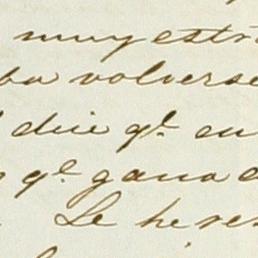 muy estr
ba volverse
dice qe. en
qe. gana a
Le he re